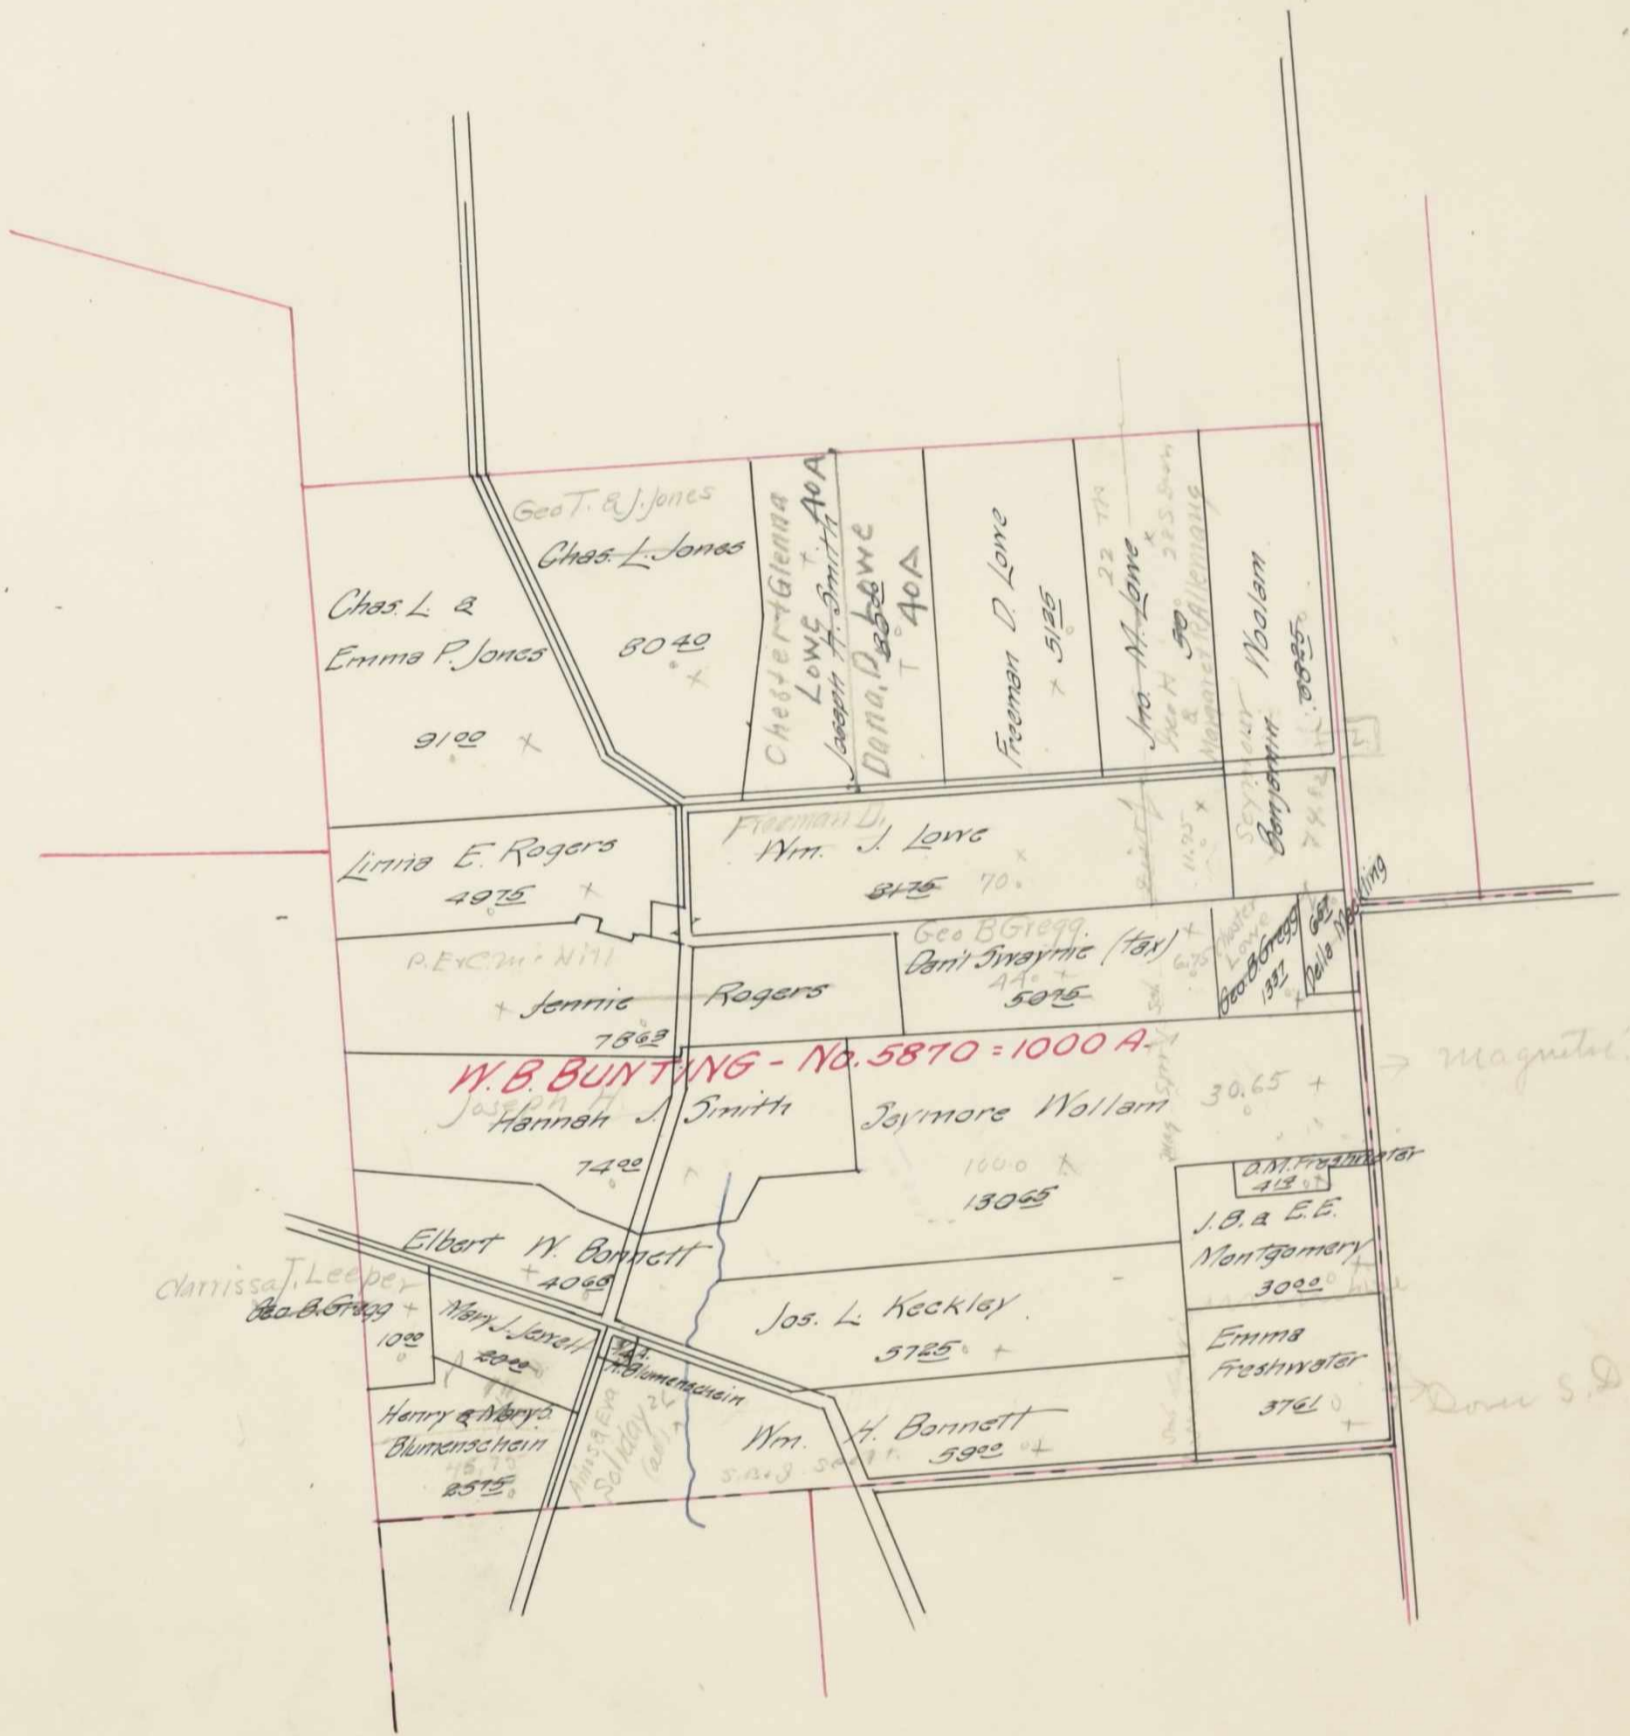 Geo T. & J. Jones
Chas. L. Jones
80 40
Chas. L. &
Emma P. Jones
91 00
Chester + Glenna
Lowe 40A
Joseph H. Smith
Dana, D. Lowe
80 00
40A
Freeman D. Lowe
51 25
22
Jno. M. Lowe
50
&
Margaret R Allemang
Seymour
Benjamin Woolam
Linnie E. Rogers
49 75
Freeman D.
Wm. J. Lowe
81 75 70
11.25
P. E + C.
Jennie Rogers
78 63
Geo B Gregg
Dan'l Swaynie (tax)
44
50 75
6.75
Chester
Lowe
Geo. B. Gregg
13 37
6 57
Della
W. B. BUNTING - No. 5870 = 1000 A.
Joseph H.
Hannah J. Smith
74 00
Seymore Wollam
30.65
100.0
130 65
magnetic
D. M. Freshwater
4 13
J. B. & E. E.
Montgomery
30 00
Elbert W. Bonnett
40 68
Clarrissa J. Leeper
Geo. B. Gregg
10 00
Mary J. Jewell
20 00
H. Blumenschein
Jos. L. Keckley
57 25
Emma
Freshwater
37 61
Henry & Mary S.
Blumenschein
45.75
25 75
Amos & Eva
Soliday
Wm. H. Bonnett
59 00
Dover S. D